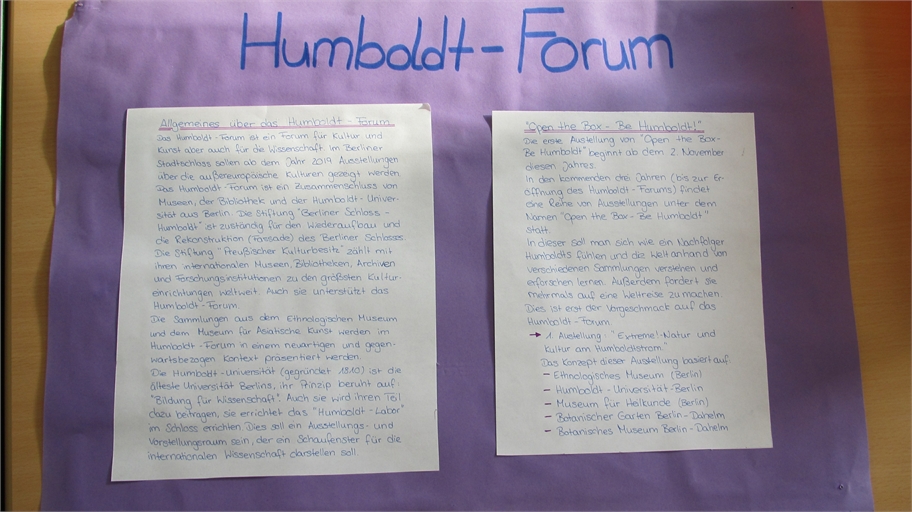 Humboldt-Forum
Allgemeines über das Humboldt-Forum
Das Humboldt-Forum ist ein Forum für Kultur und
Kunst aber auch für die Wissenschaft. Im Berliner
Stadtschloss sollen ab dem Jahr 2019 Ausstellungen
über die außereuropäische Kulturen gezeigt werden.
Das Humboldt-Forum ist ein Zusammenschluss von
Museen, der Bibliothek und der Humboldt-Univer-
sität aus Berlin. Die Stiftung "Berliner Schloss-
Humboldt" ist zuständig für den Wiederaufbau und
die Rekonstruktion (Farsade) des Berliner Schlosses.
Die Stiftung "Preußischer Kulturbesitz" zählt mit
ihren internationalen Museen, Bibliotheken, Archiven
und Forschungsinstitutionen zu den größten Kultur-
einrichtungen weltweit. Auch sie unterstützt das
Humboldt-Forum.
Die Sammlungen aus dem Ethnologischen Museum
und dem Museum für Asiatische Kunst werden im
Humboldt-Forum in einem neuartigen und gegen-
wartsbezogen Kontext präsentiert werden.
Die Humboldt-Universität (gegründet 1810) ist die
älteste Universität Berlins, ihr Prinzip beruht auf:
"Bildung für Wissenschaft". Auch sie wird ihren Teil
dazu beitragen, sie errichtet das "Humboldt-Labor"
im Schloss errichten. Dies soll ein Ausstellungs- und
Vorstellungsraum sein, der ein Schaufenster für die
internationalen Wissenschaft darstellen soll.
"Open the Box- Be Humboldt!"
Die erste Austellung von "Open the Box-
Be Humboldt" beginnt ab dem 2. November
diesen Jahres.
In den kommenden drei Jahren (bis zur Er-
öffnung des Humboldt-Forums) findet
eine Reihe von Ausstellungen unter dem
Namen "Open the Box- Be Humboldt"
statt.
In dieser soll man sich wie ein Nachfolger
Humboldts fühlen und die Welt anhand von
verschiedenen Sammlungen verstehen und
erforschen lernen. Außerdem fordert sie
mehrmals auf eine Weltreise zu machen.
Dies ist erst der Vorgeschmack auf das
Humboldt-Forum.
→ 1. Austellung: "Extreme!-Natur und
Kultur am Humboldtstrom."
Das Konzept dieser Austellung basiert auf:
- Ethnologisches Museum (Berlin)
- Humboldt-Universität-Berlin
- Museum für Heilkunde (Berlin)
- Botanischer Garten Berlin-Dahelm
- Botanisches Museum Berlin-Dahelm